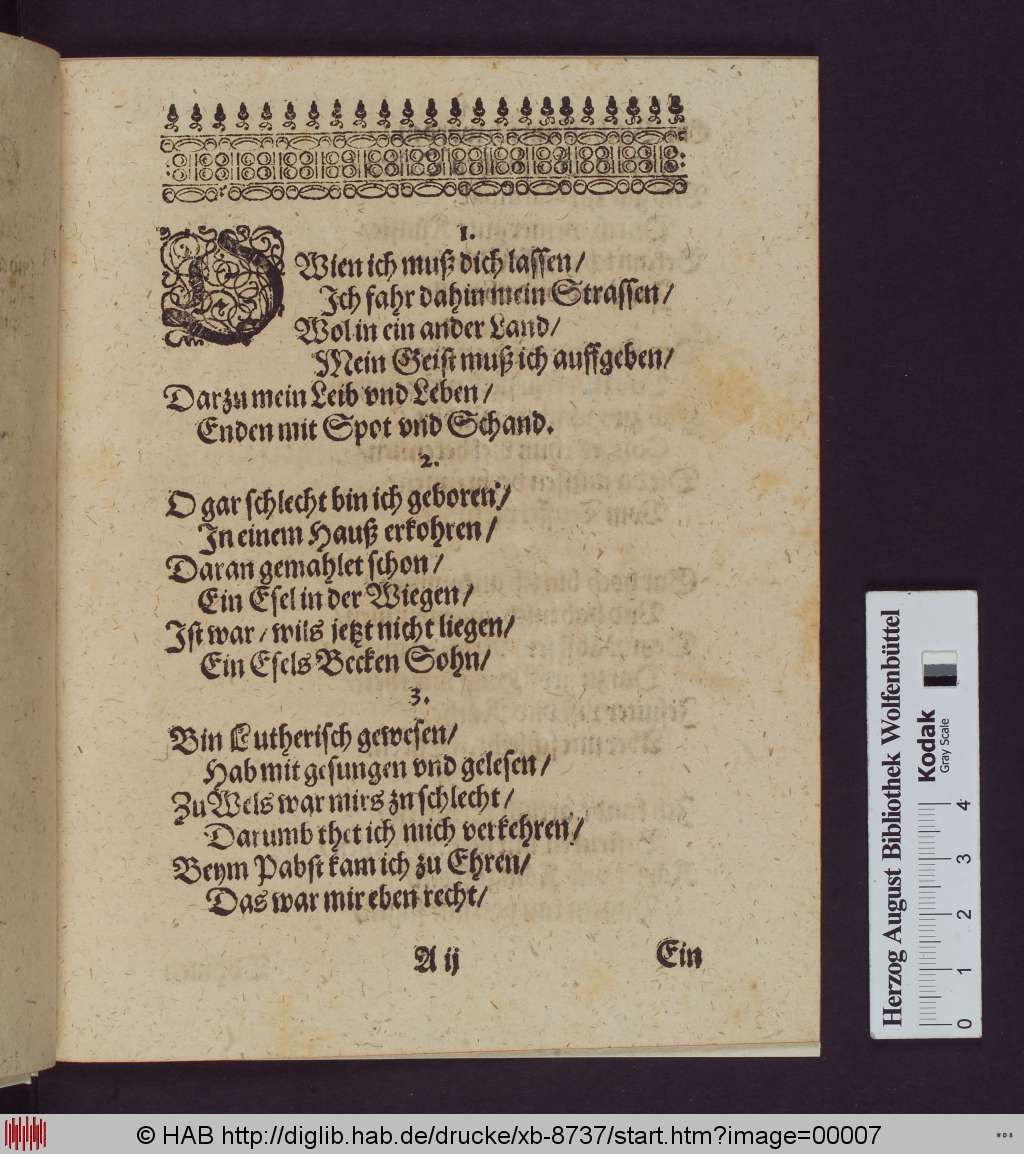 1.
O Wien ich muß dich lassen/
Ich fahr dahin mein Strassen/
Wol in ein ander Land/
Mein Geist muß ich auffgeben/
Darzu mein Leib vnd Leben/
Enden mit Spot vnd Schand.
2.
O gar schlecht bin ich geboren/
In einem Hauß erkohren/
Daran gemahlet schon/
Ein Esel in der Wiegen/
Ist war/ wils jetzt nicht liegen/
Ein Esels Becken Sohn/
3.
Bin Lutherisch gewesen/
Hab mit gesungen vnd gelesen/
Zu Wels war mirs zu schlecht/
Darumb thet ich mich verkehren/
Beym Pabst kam ich zu Ehren/
Das war mir eben recht/
A ij Ein
Herzog August Bibliothek Wolfenbüttel
Kodak
Gray Scale
0 1 2 3 4
© HAB http://diglib.hab.de/drucke/xb-8737/start.htm?image=00007